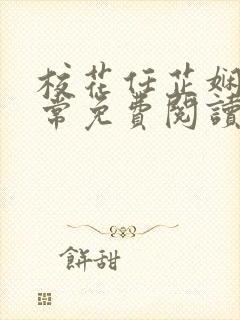 校花任芷娴
常免費閱讀
餅甜